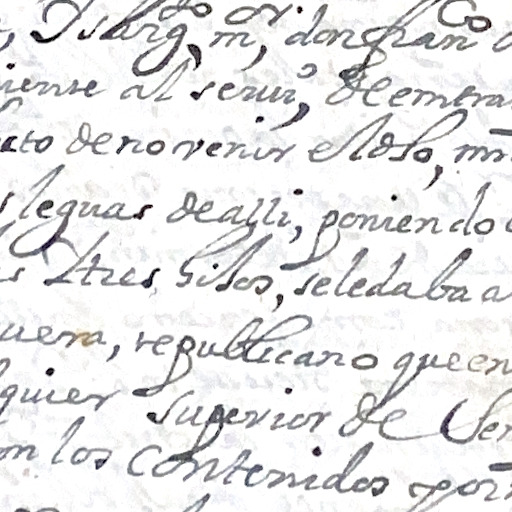 Ysarg^to m^or, don fran^co
niente al seruiº, de entra
cto de no venir el dho, mr̃
s leguas de alli, poniendo
s y tres hilos, se le daba a
uera, republicano que en
lquier superior de Ser
on los contenidos por